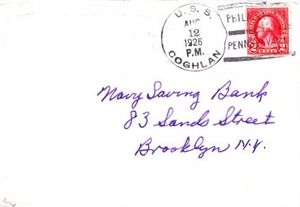 U. S. S.
AUG
12
1926
P.M.
COGHLAN
PHIL
PENN
CENTS
Navy Saving Bank
83 Sands Street
Brooklyn N.Y.